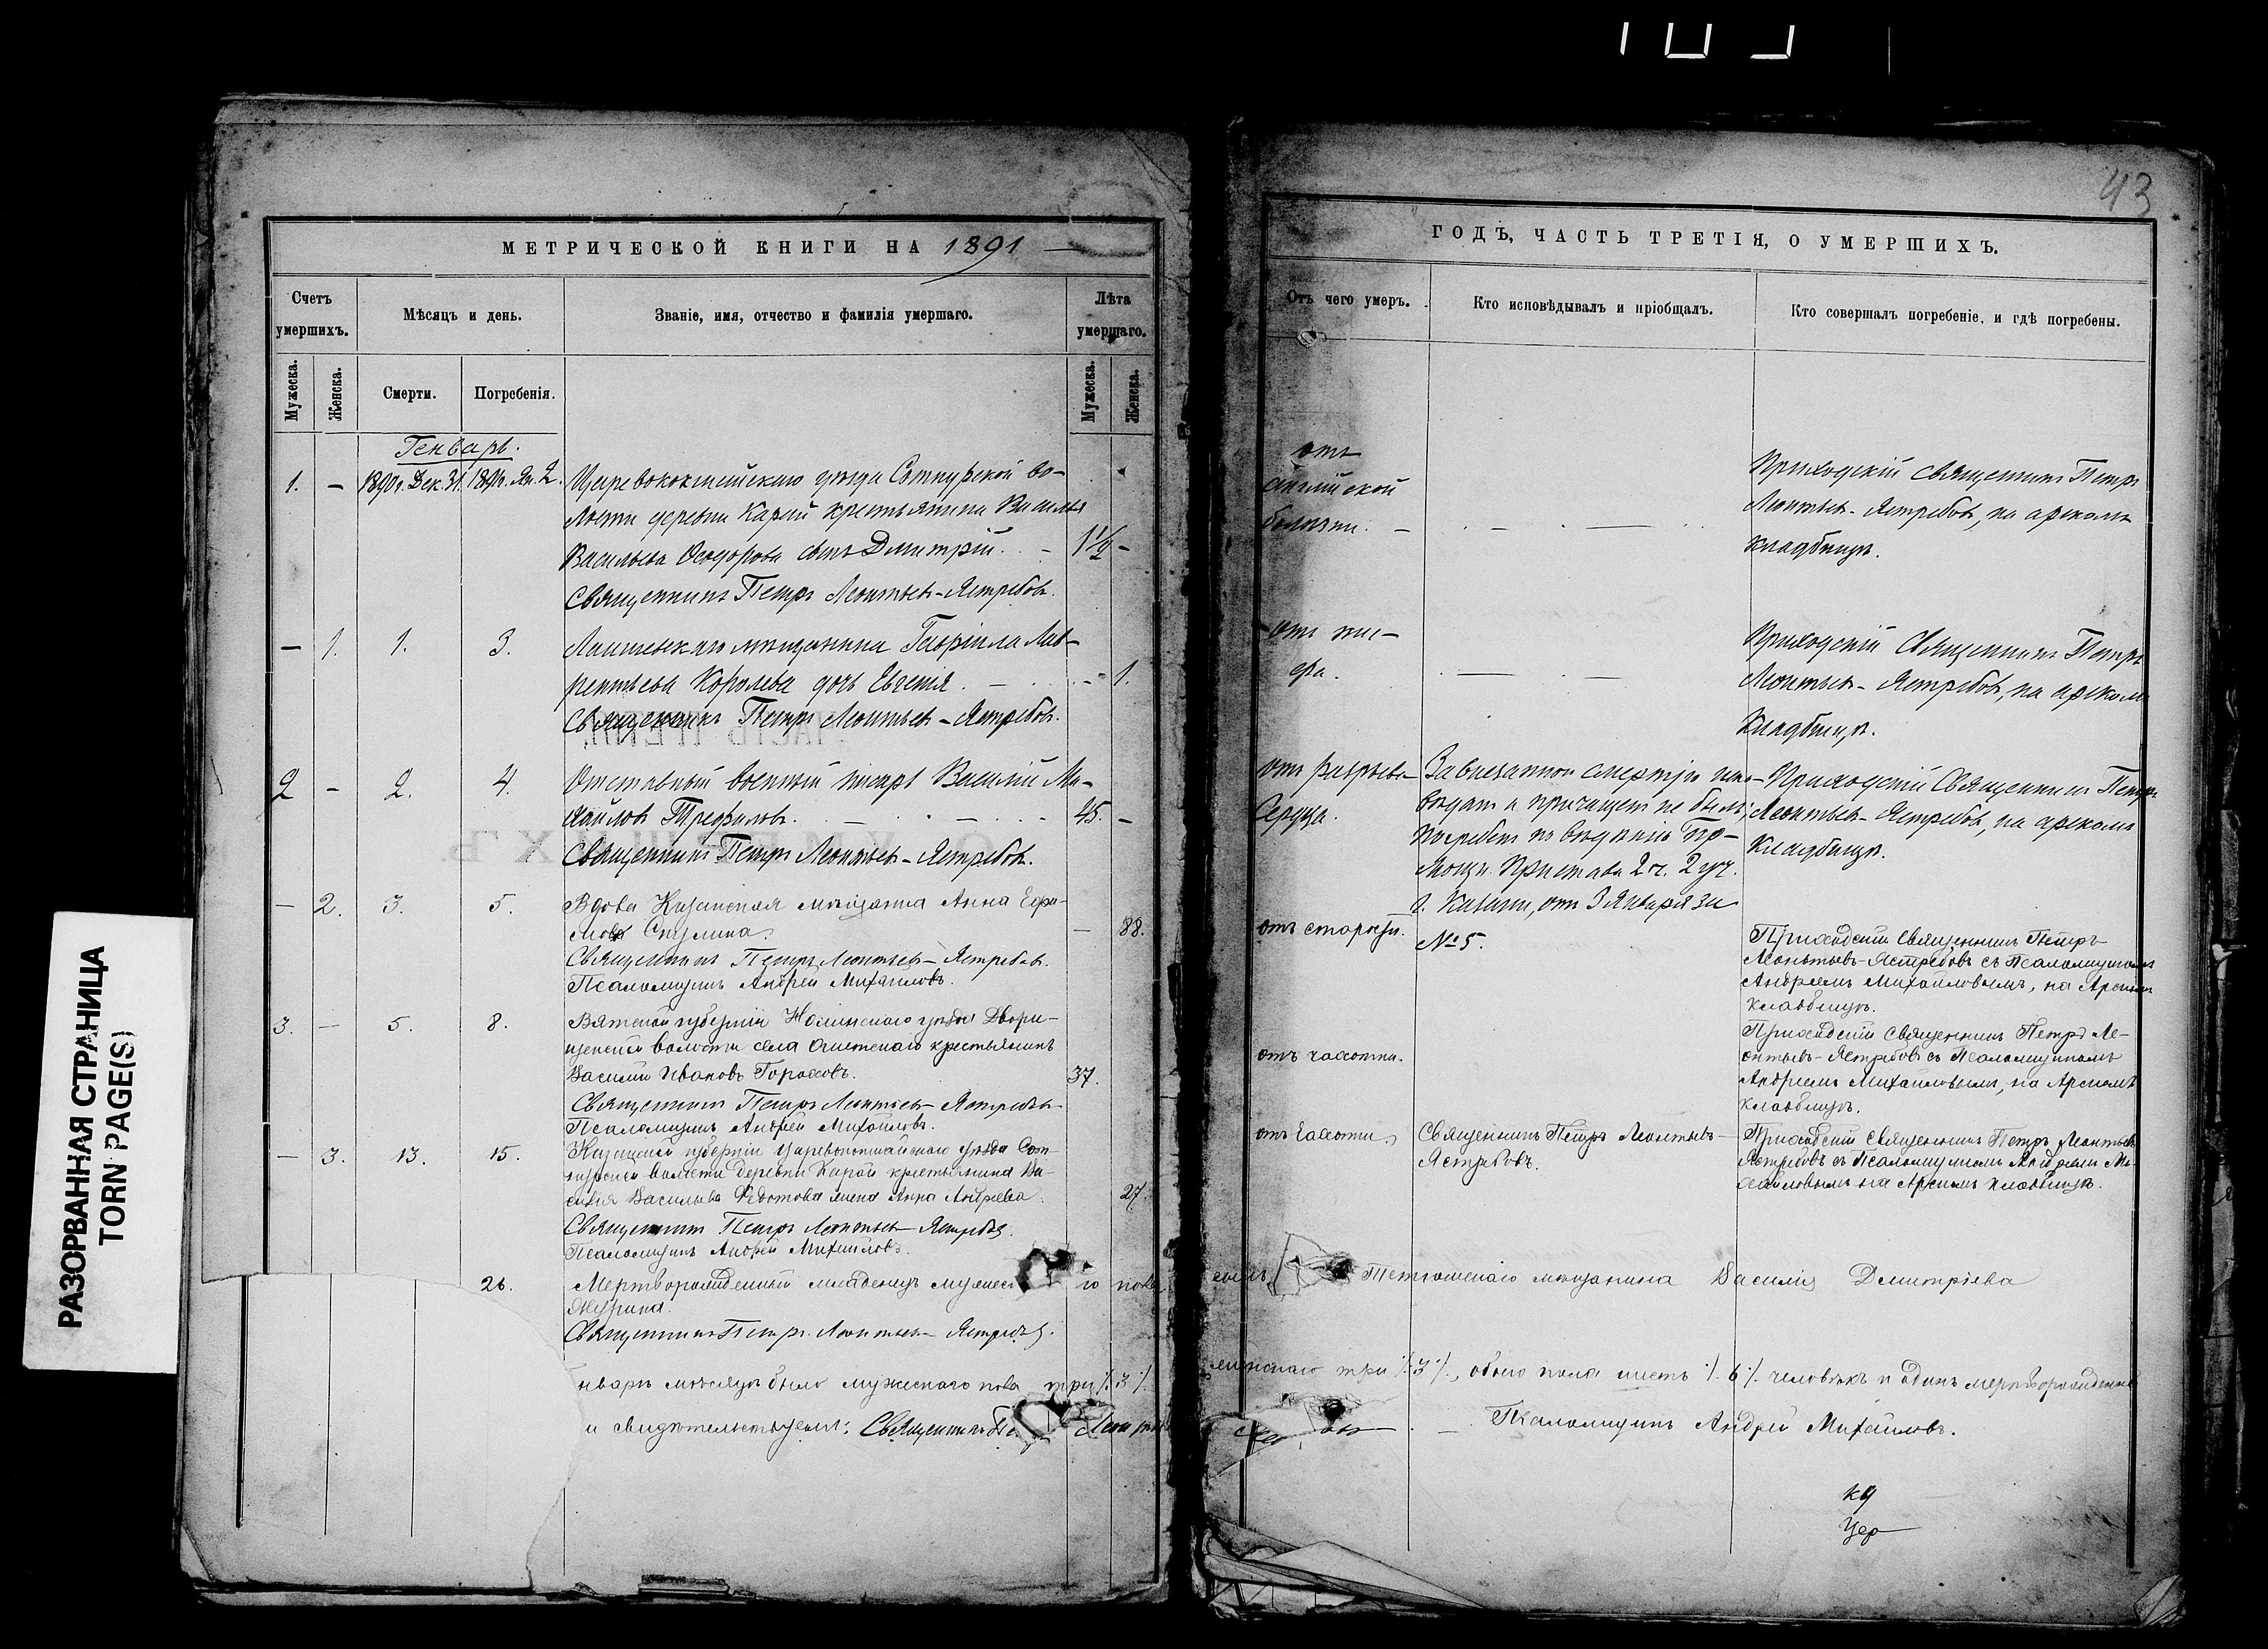 43
МЕТРИЧЕСКОЙ КНИГИ НА 1891
Счетъ умершихъ.
Мѣсяцъ и день.
Званіе, имя, отчество и фамилія умершаго.
Лѣта умершаго.
Мужеска.
Женска.
Смерти.
Погребенія.
Мужеска.
Женска.
Генварь.
1. – 1890 г. Дек. 31. 1891 г. Ян. 2. Царевококшайскаго уѣзда Сотнурской во-
лости деревни Карай крестьянина Василья
Васильева Ѳеодорова сынъ Дмитрій. – 1 1/2 –
Священникъ Петръ Леонтьев-Ястребовъ.
– 1. 1. 3. Лаишевскаго мѣщанина Гавріила Лав-
рентьева Королева дочь Евгенія. – 1.
Священникъ Петръ Леонтьев-Ястребовъ.
2 – 2. 4. Отставный военный писарь Василій Ми-
хайловъ Трефиловъ. 45. –
Священникъ Петръ Леонтьев-Ястребовъ.
– 2. 3. 5. Вдова Казанская мѣщанка Анна Ефи-
мова – 88.
Священникъ Петръ Леонтьев-Ястребовъ.
Псаломщикъ Андрей Михайловъ.
3. – 5. 8. Вятской губерніи Нолинскаго уѣзда
волости села крестьянинъ
Василій Ивановъ Гороховъ. 37.
Священникъ Петръ Леонтьев-Ястребовъ
Псаломщикъ Андрей Михайловъ.
– 3. 13. 15. Казанской губерніи Царевококшайскаго уѣзда Сот-
нурской волости деревни Карай крестьянина Ва-
силія Васильева Ѳедотова жена Анна Андреева. 27.
Священникъ Петръ Леонтьев-Ястребовъ.
Псаломщикъ Андрей Михайловъ.
26. Мертворожденный младенецъ мужес го пола
Священникъ Петръ Леонтьев-Ястребовъ.
нварѣ мѣсяцѣ было мужескаго пола три /.3./.
и свидѣтельствуемъ: Священникъ
ГОДЪ, ЧАСТЬ ТРЕТІЯ, О УМЕРШИХЪ.
Отъ чего умеръ.
Кто исповѣдывалъ и пріобщалъ.
Кто совершалъ погребеніе, и гдѣ погребены.
отъ
англійской
болѣзни.
Приходскій Священникъ Петръ
Леонтьев-Ястребовъ, на арскомъ
кладбищѣ.
отъ
Приходскій Священникъ Петръ
Леонтьев-Ястребовъ, на арскомъ
кладбищѣ.
отъ разрыва
Сердца.
За внезапною смертію испо-
вѣданъ и причащенъ не былъ;
погребенъ по
Пристава 2 ч. 2 уч.
г. Казани, отъ 3 Января за
№ 5.
Приходскій Священникъ Петръ
Леонтьев-Ястребовъ, на арскомъ
кладбищѣ.
отъ старости.
Приходскій Священникъ Петръ
Леонтьевъ-Ястребовъ съ Псаломщикомъ
Андреемъ Михайловымъ, на Арскомъ
кладбищѣ.
отъ чахотки.
Приходскій Священникъ Петръ Ле-
онтьевъ-Ястребовъ съ Псаломщикомъ
Андреемъ Михайловымъ, на Арскомъ
кладбищѣ.
отъ чахотки.
Священникъ Петръ Леонтьевъ-
Ястребовъ.
Приходскій Священникъ Петръ Леонтьевъ
Ястребовъ съ Псаломщикомъ Андреемъ Ми-
хайловымъ на Арскомъ кладбищѣ.
сынъ Тетюшскаго мѣщанина Василія Дмитріева
женскаго три /.3./., обоего пола шесть /.6./. человѣкъ и одинъ мертворожденный
Псаломщикъ Андрей Михайловъ.
РАЗОРВАННАЯ СТРАНИЦА
TORN PAGE(S)